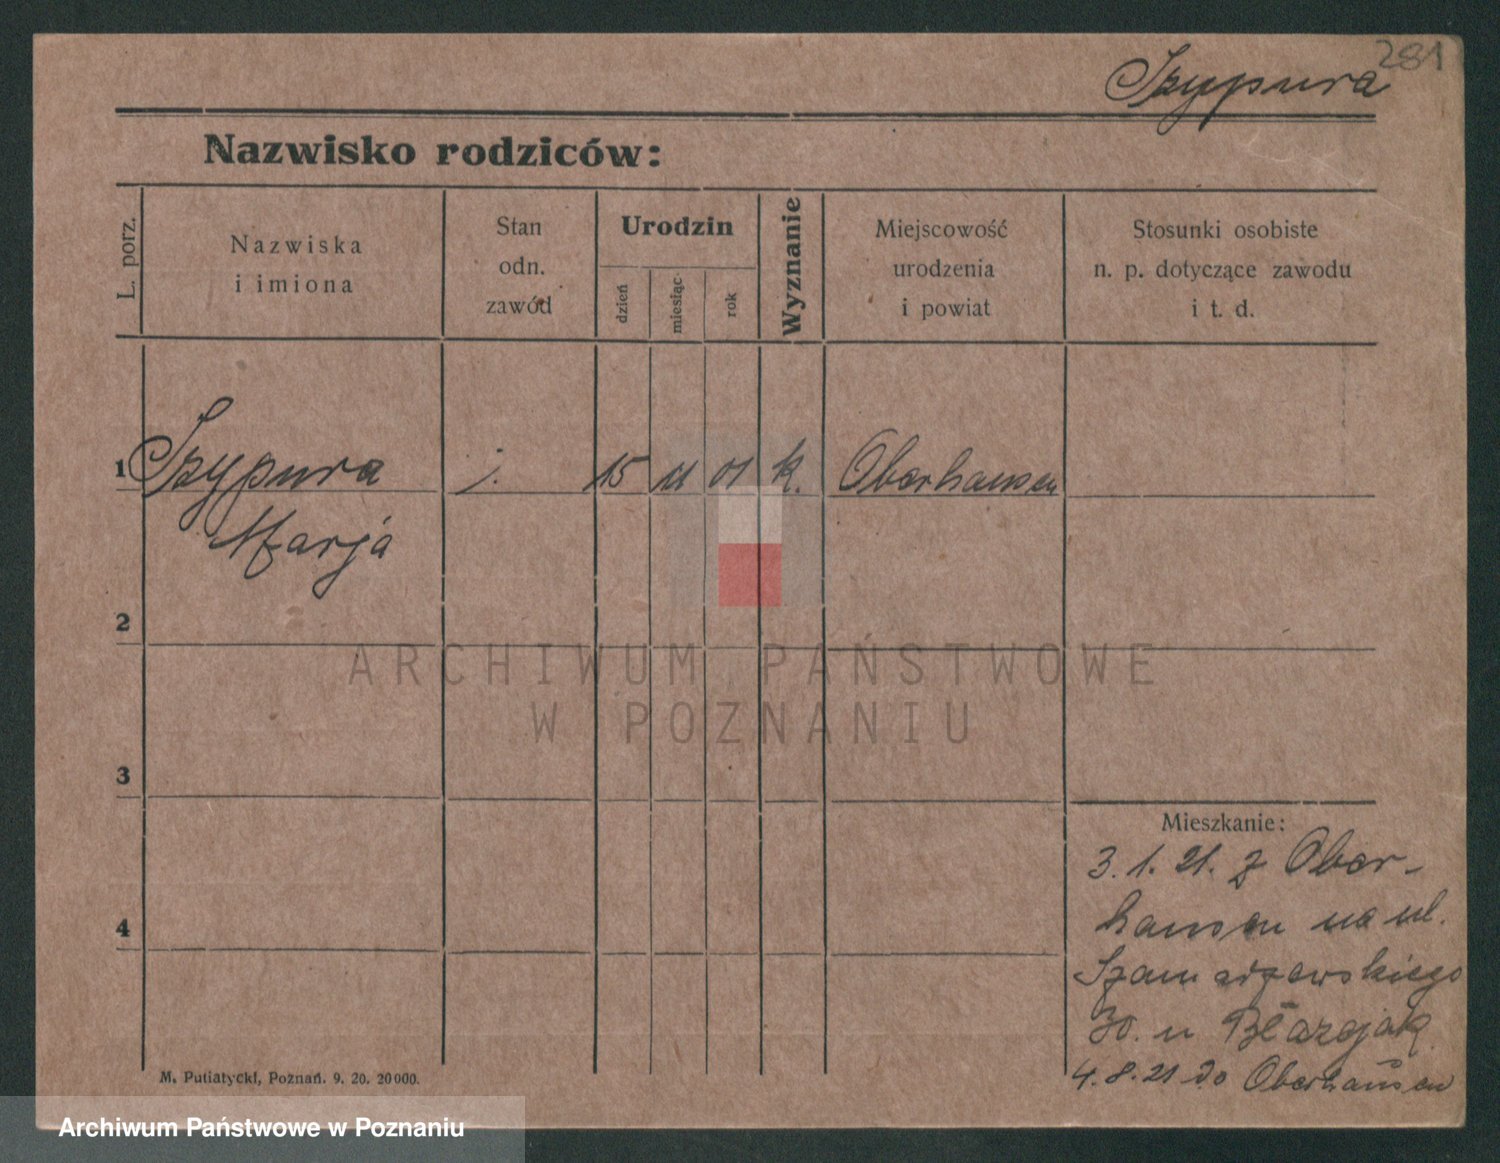 281
Szypura
Nazwisko rodziców:
L. porz.
Nazwiska
i imiona
Stan
odn.
zawód
Urodzin
dzień
miesiąc
rok
Wyznanie
Miejscowość
urodzenia
i powiat
Stosunki osobiste
n. p. dotyczące zawodu
i t. d.
1 Szypura j. 15 11 01 k. Oberhausen
Marja
2
3
4
Mieszkanie:
3. 1. 21. z Ober-
hausen na ul.
Szamarzewskiego
30. u Błazejak
4. 8. 21 do Oberhausen
M. Putiatycki, Poznań. 9. 20. 20000.
ARCHIWUM PAŃSTWOWE
W POZNANIU
Archiwum Państwowe w Poznaniu